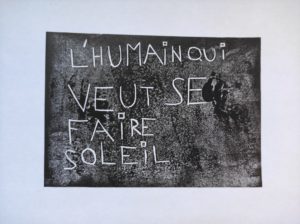 L'HUMAIN QUI
VEUT SE
FAIRE
SOLEIL